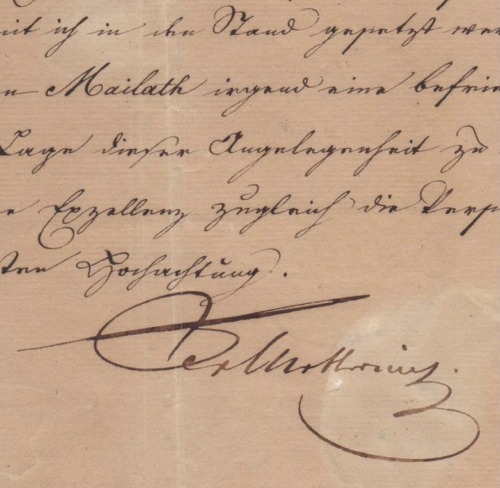 mit ich in den Stand gesetzt wer
n Mailath irgend eine befrie
Lage dieser Angelegenheit zu
e Exzellenz zugleich die Versi
sten Hochachtung.